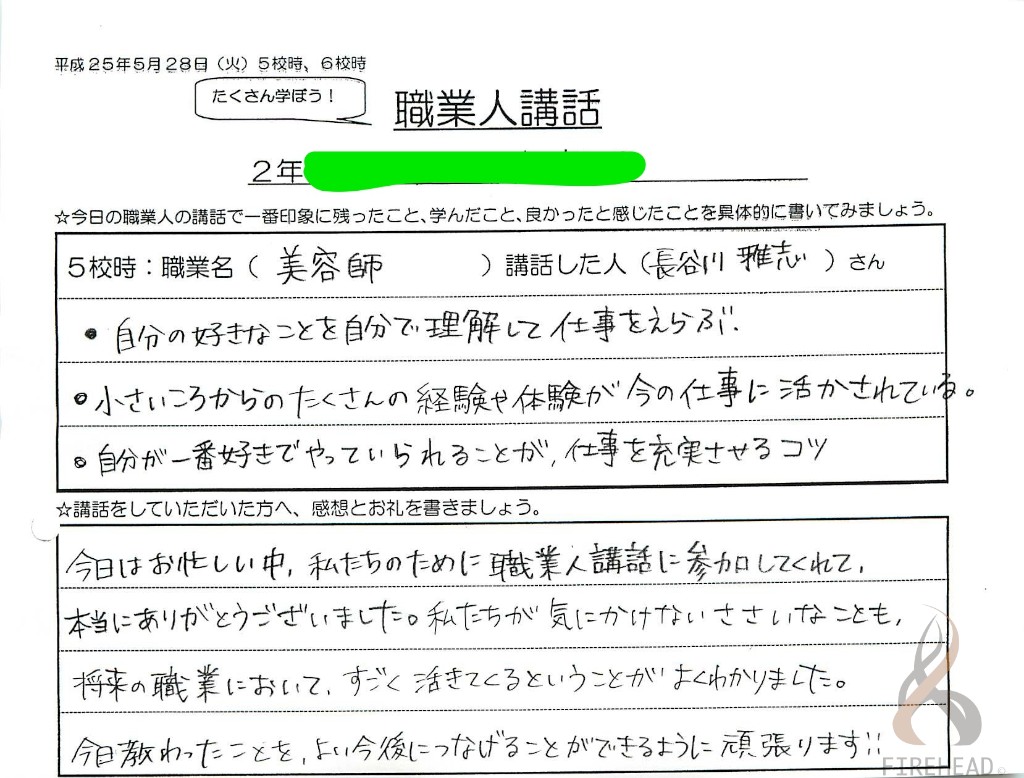 平成25年5月28日（火）5校時、6校時
たくさん学ぼう！
職業人講話
2年
☆今日の職業人の講話で一番印象に残ったこと、学んだこと、良かったと感じたことを具体的に書いてみましょう。
5校時：職業名（ 美容師 ）講話した人（長谷川 雅志 ）さん
• 自分の好きなことを自分で理解して仕事をえらぶ.
• 小さいころからのたくさんの経験や体験が今の仕事に活かされている。
• 自分が一番好きでやっていられることが,仕事を充実させるコツ
☆講話をしていただいた方へ、感想とお礼を書きましょう。
今日はお忙しい中,私たちのために職業人講話に参加してくれて,
本当にありがとうございました。私たちが気にかけないささいなことも,
将来の職業において,すごく活きてくるということがよくわかりました。
今日教わったことを,よい今後につなげることができるように頑張ります!!
FIREHEAD